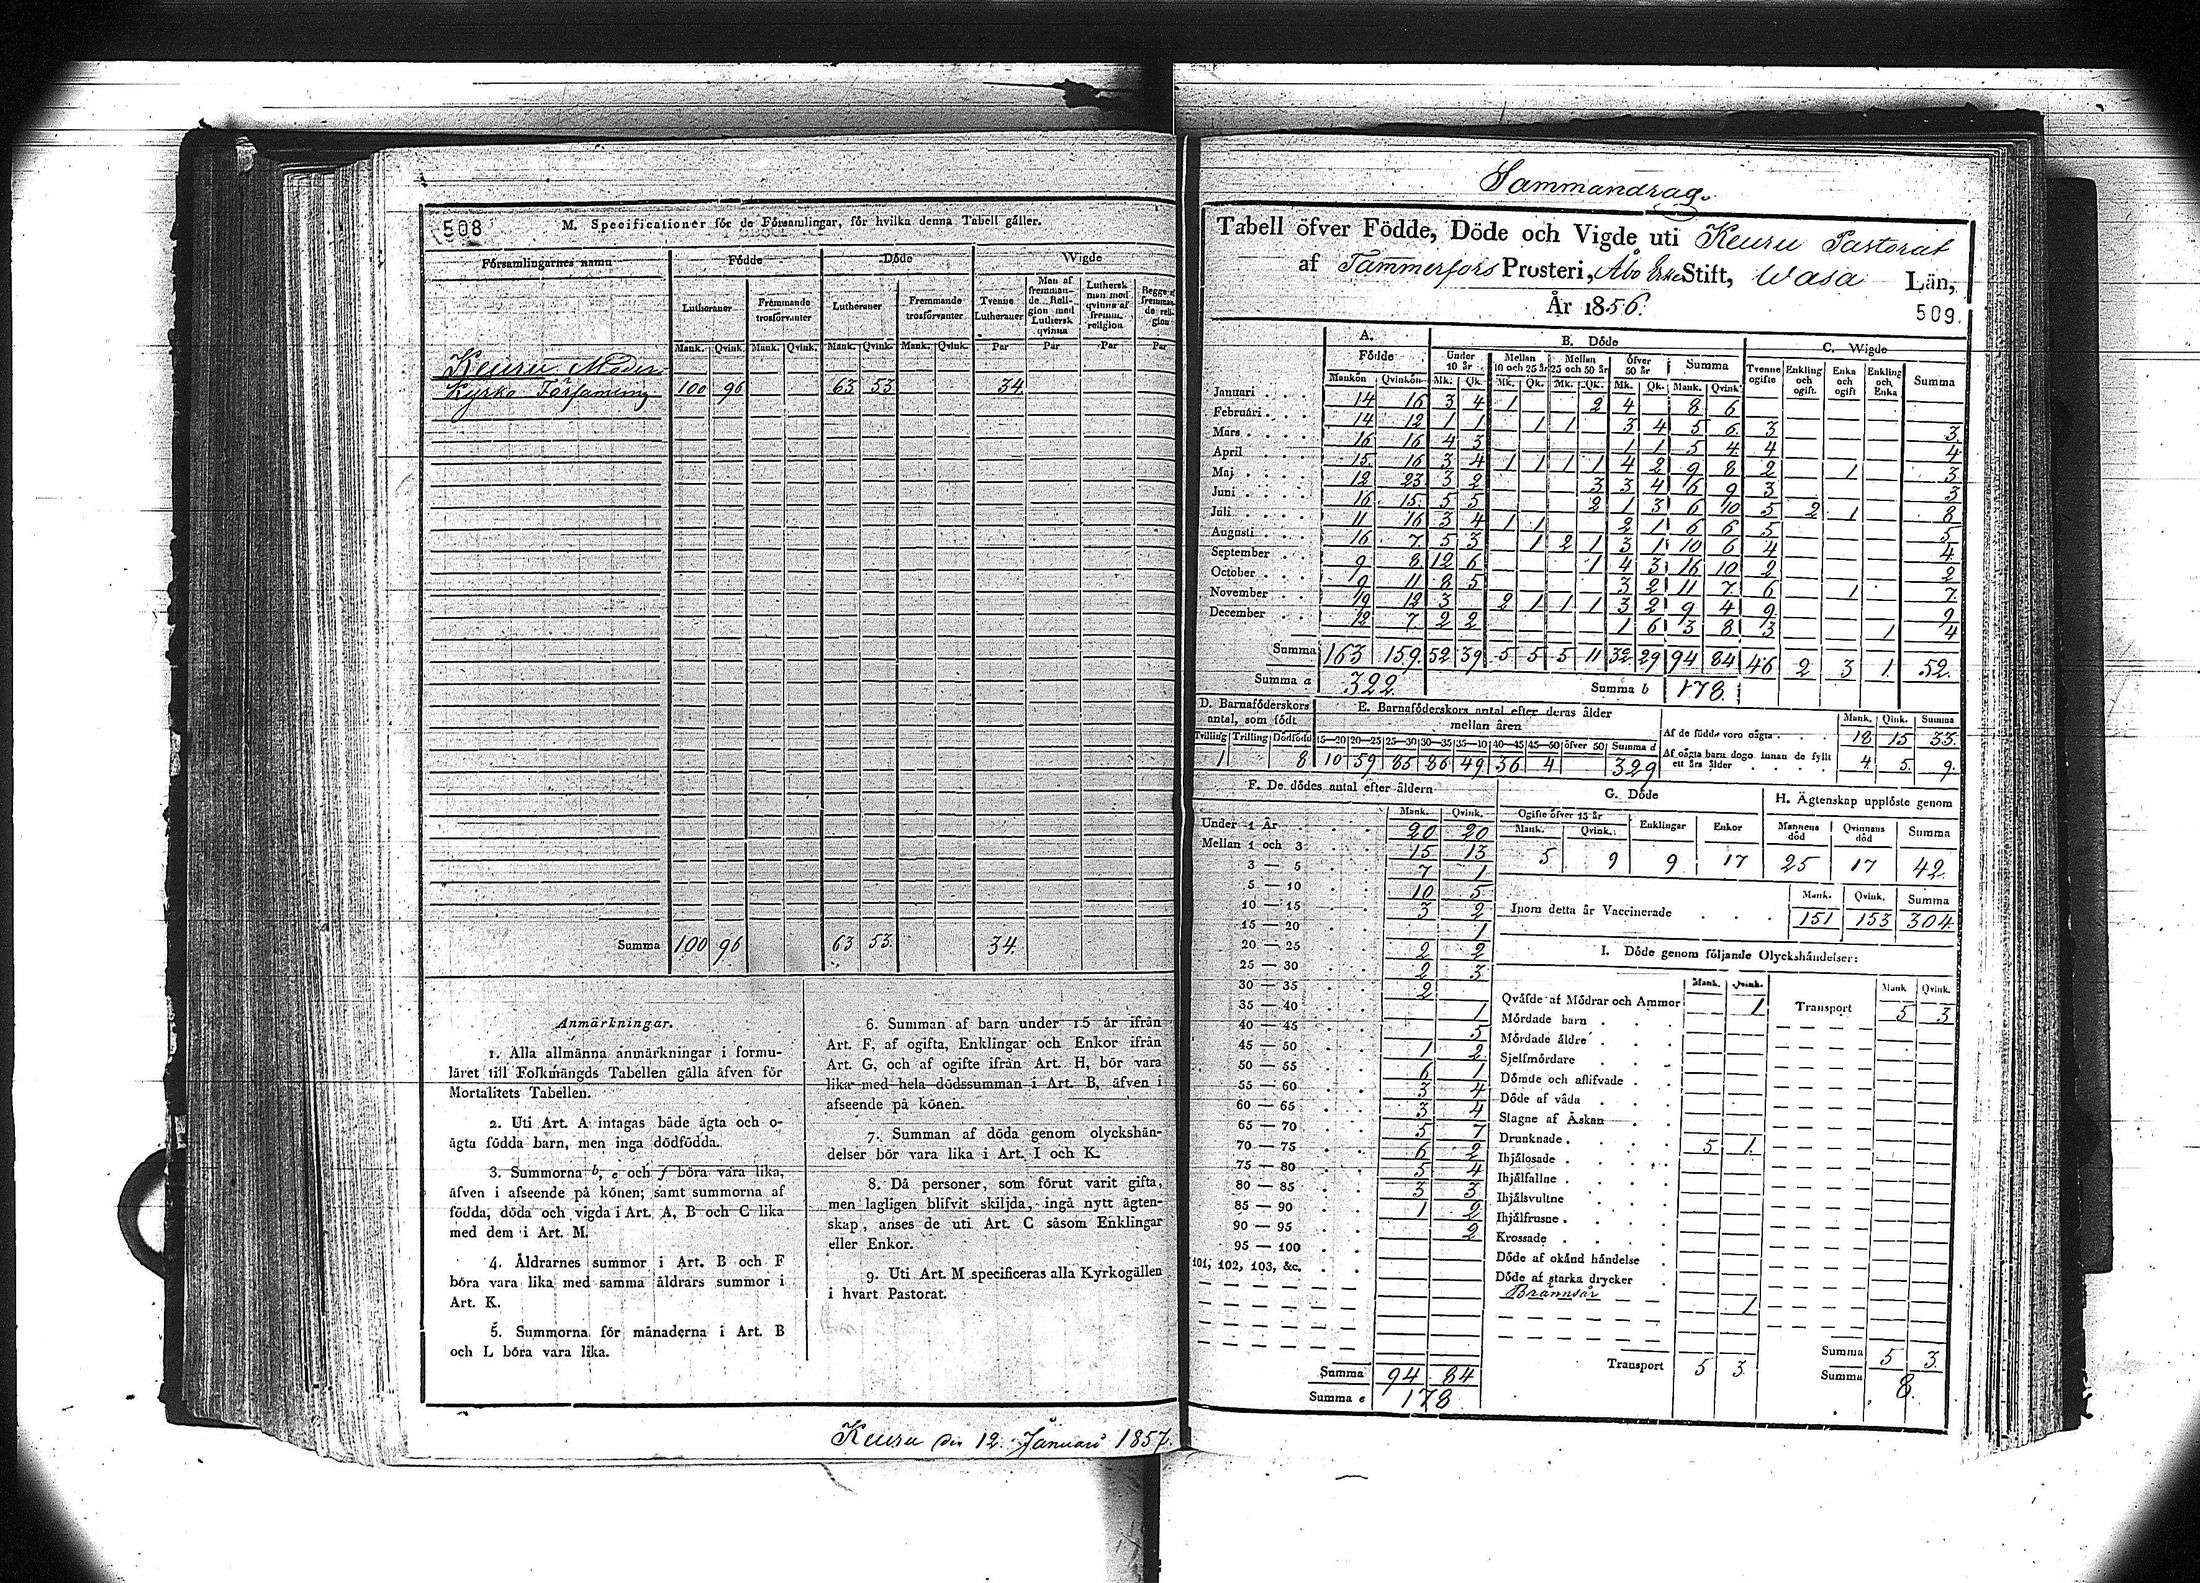 508
M. Specificationer för de Församlingar, för hvilka denna Tabell gäller.
Församlingarnes namn Födde Döde Wigde
Lutheraner Fremmande trosförvanter Lutheraner Fremmande trosförvanter Tvenne Lutheraner Man af fremmande Religion med Luthersk qvinna Luthersk man med qvinna af fremm. religion Begge af fremmande religion
Mank. Qvink. Mank. Qvink. Mank. Qvink. Mank. Qvink. Par Par Par Par
Keuru Moder
Kyrko Församling 100 96 63 53 34.
Summa 100 96 63 53. 34.
Anmärkningar.
1. Alla allmänna anmärkningar i formu-
läret till Folkmängds Tabellen gälla äfven för
Mortalitets Tabellen.
2. Uti Art. A intagas både ägta och o-
ägta födda barn, men inga dödfödda.
3. Summorna b, e och f böra vara lika,
äfven i afseende på könen; samt summorna af
födda, döda och vigda i Art. A, B och C lika
med dem i Art. M.
4. Åldrarnes summor i Art. B och F
böra vara lika med samma åldrars summor i
Art. K.
5. Summorna för månaderna i Art. B
och L böra vara lika.
6. Summan af barn under 15 år ifrån
Art. F, af ogifta, Enklingar och Enkor ifrån
Art. G, och af ogifte ifrån Art. H, bör vara
lika med hela dödssumman i Art. B, äfven i
afseende på könen.
7. Summan af döda genom olyckshän-
delser bör vara lika i Art. I och K.
8. Då personer, som förut varit gifta,
men lagligen blifvit skiljda, ingå nytt ägten-
skap, anses de uti Art. C såsom Enklingar
eller Enkor.
9. Uti Art. M specificeras alla Kyrkogällen
i hvart Pastorat.
Keuru den 12. Januari 1857.
Sammandrag.
Tabell öfver Födde, Döde och Vigde uti Keuru Pastorat
af Tammerfors Prosteri, Åbo Erke Stift, Wasa Län,
År 1856.
509.
A. B. Döde C. Wigde
Födde Under 10 år Mellan 10 och 25 år Mellan 25 och 50 år öfver 50 år Summa Tvenne ogifte Enkling och ogift. Enka och ogift Enkling och Enka Summa
Mankön Qvinkön Mk. Qk. Mk. Qk. Mk. Qk. Mk. Qk. Mank. Qvink.
Januari 14 16 3 4 1 2 4 8 6
Februari 14 12 1 1 1 1 3 4 5 6 3 3
Mars 16 16 4 3 1 1 5 4 4 4
April 15 16 3 4 1 1 1 1 4 2 9 8 2 1 3
Maj 12 23 3 2 3 3 4 6 9 3 3
Juni 16 15 5 5 2 1 3 6 10 5 2 1 8
Juli 11 16 3 4 1 1 2 1 6 6 5 5
Augusti 16 7 5 3 1 2 1 3 1 10 6 4 4
September 9 8 12 6 1 4 3 16 10 2 2
October 9 11 8 5 3 2 11 7 6 1 7
November 19 12 3 2 1 1 1 3 2 9 4 9 9
December 12 7 2 2 1 6 3 8 3 1 4
Summa 163 159. 52 39 5 5 5 11 32 29 94 84 46 2 3 1. 52.
Summa a 322 Summa b 178.
D. Barnaföderskors antal, som födt
E. Barnaföderskors antal efter deras ålder mellan åren
Mank. Qink. Summa
Tvilling Trilling Dödfödd 15—20 20—25 25—30 30—35 35—40 40—45 45—50 öfver 50 Summa d
1 8 10 59 85 86 49 36 4 329
Af de födde voro oägta 18 15 33.
Af oägta barn dogo innan de fyllt
ett års ålder 4. 5. 9.
F. De dödes antal efter åldern
Mank. Qvink.
Under 1 År 20 20
Mellan 1 och 3 15 13
3 — 5 7 1
5 — 10 10 5
10 — 15 3 2
15 — 20 1
20 — 25 2 2
25 — 30 2 3
30 — 35 2
35 — 40 1
40 — 45 5
45 — 50 1 2
50 — 55 6 1
55 — 60 3 4
60 — 65 3 4
65 — 70 5 7
70 — 75 6 2
75 — 80 5 4
80 — 85 3 3
85 — 90 1 2
90 — 95 2
95 — 100
101, 102, 103, &c.
Summa 94 84
Summa e 178
G. Döde
Ogifte öfver 15 år Enklingar Enkor
Mank. Qvink.
5 9 9 17
H. Ägtenskap upplöste genom
Mannens död Qvinnans död Summa
25 17 42
Mank. Qvink. Summa
Inom detta år Vaccinerade 151 153 304
I. Döde genom följande Olyckshändelser:
Mank. Qvink. Mank Qvink.
Qväfde af Mödrar och Ammor 1 Transport 5 3
Mördade barn
Mördade äldre
Sjelfmördare
Dömde och aflifvade
Döde af våda
Slagne af Åskan
Drunknade 5 1
Ihjälosade
Ihjälfallne
Ihjälsvultne
Ihjälfrusne
Krossade
Döde af okänd händelse
Döde af starka drycker
Brännsår 1
Summa 5 3.
Transport 5 3. Summa 8.